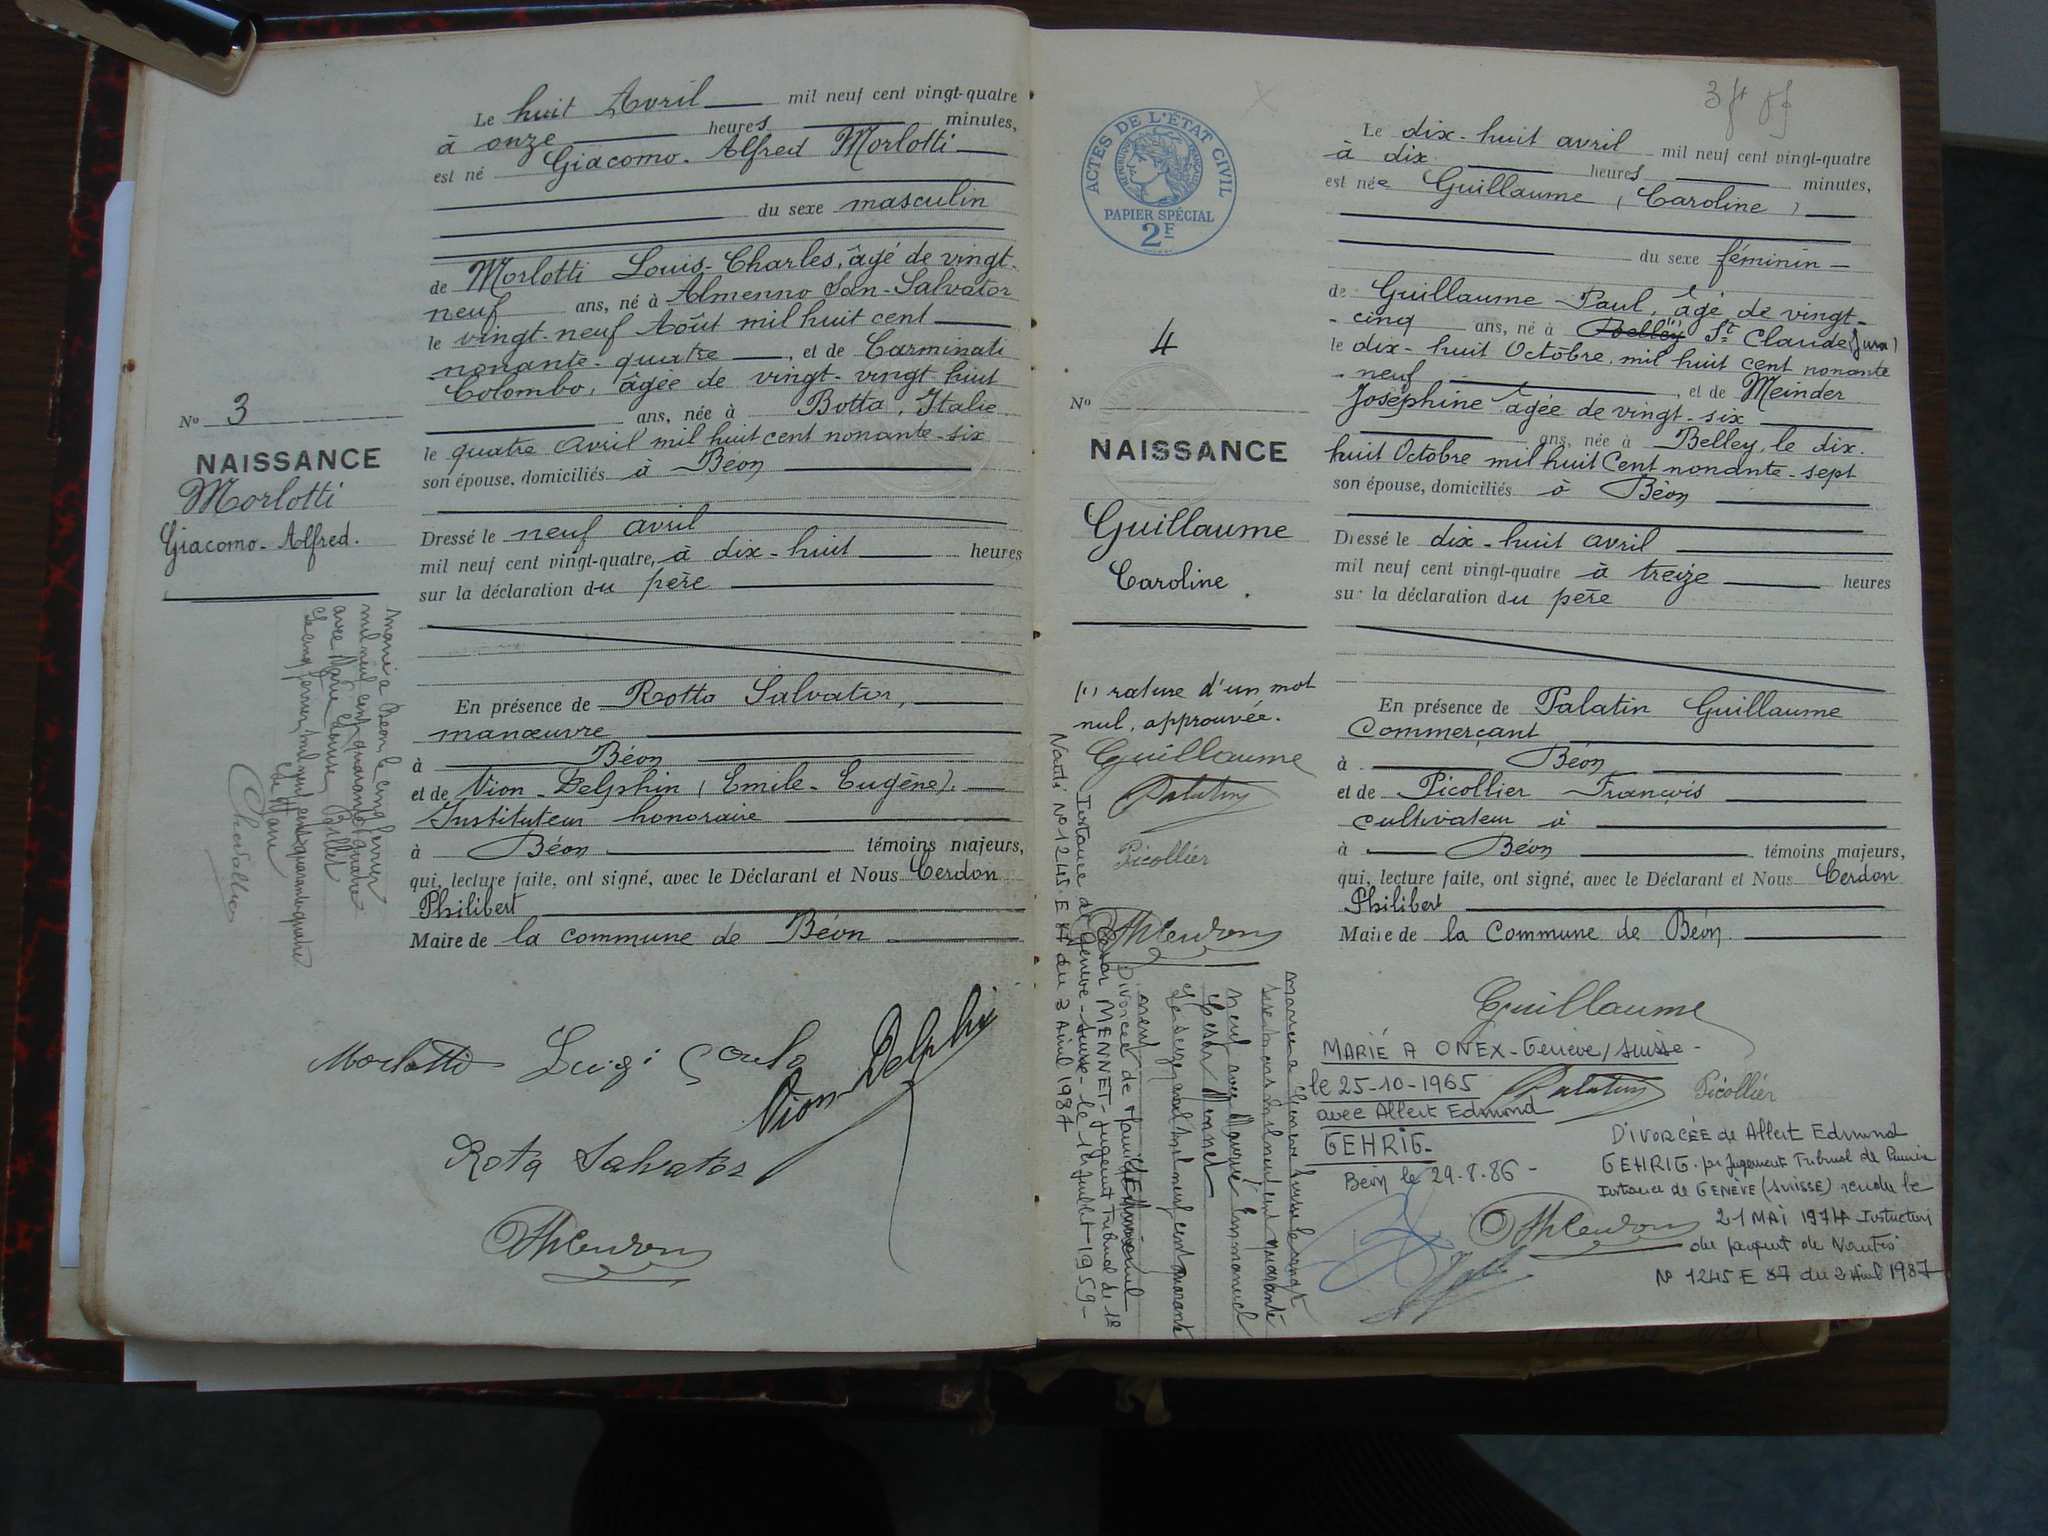 Le huit Avril mil neuf cent vingt-quatre
à onze heures minutes,
est né Giacomo-Alfred Morlotti
du sexe masculin
de Morlotti Louis-Charles, âgé de vingt-
neuf ans, né à Almenno San-Salvator
le vingt-neuf Août mil huit cent
nonante-quatre, et de Carminati
Colombo, âgée de vingt-vingt huit
ans, née à Botta, Italie
le quatre avril mil huit cent nonante-six
son épouse, domiciliés à Béon
No 3
NAISSANCE
Morlotti
Giacomo-Alfred.
Dressé le neuf avril
mil neuf cent vingt-quatre, à dix-huit heures
sur la déclaration du père
En présence de Rotta Salvator,
manœuvre
à Béon
et de Vion-Delphin (Emile-Eugène),
Instituteur honoraire
à Béon témoins majeurs,
qui, lecture faite, ont signé, avec le Déclarant et Nous Cerdon
Philibert
Maire de la commune de Béon
Marié à Béon le cinq février
mil neuf cent quarante quatre
avec Marie Louise Billet
Le cinq février mil neuf cent quarante quatre
Le Maire
Chevallier
Morlotti Luigi
Vion-Delphin
Rota Salvator
ACTES DE L'ÉTAT CIVIL
PAPIER SPÉCIAL
2F
Le dix-huit avril mil neuf cent vingt-quatre
à dix heures minutes,
est née Guillaume (Caroline)
du sexe féminin
de Guillaume Paul, âgé de vingt-
cinq ans, né à Belley (1) St Claude (Jura)
le dix-huit Octobre mil huit cent nonante
-neuf, et de Meinder
Joséphine âgée de vingt-six
ans, née à Belley, le dix-
huit Octobre mil huit Cent nonante-sept
son épouse, domiciliés à Béon
No 4
NAISSANCE
Guillaume
Caroline.
Dressé le dix-huit avril
mil neuf cent vingt-quatre à treize heures
sur la déclaration du père
En présence de Palatin Guillaume
Commerçant
à Béon
et de Picollier François
cultivateur à
à Béon témoins majeurs,
qui, lecture faite, ont signé, avec le Déclarant et Nous Cerdon
Philibert
Maire de la Commune de Béon
(1) rature d'un mot
nul, approuvée.
Guillaume
Palatin
Picollier
Mariée à Genève Suisse le vingt
mil neuf cent quarante
neuf avec Maurice Emmanuel
César Mennet
Le seize août mil neuf cent quarante
neuf
Divorcée de Maurice Emmanuel
César MENNET. Jugement Tribunal de 1e
Instance de Genève - Suisse - le 1er juillet 1959 -
Nantes No 1245 E 87 du 3 Avril 1987
Guillaume
Palatin Picollier
MARIÉ A ONEX - Genève / Suisse -
le 25-10-1965
avec Albert Edmond
GEHRIG.
Béon le 29.8.86 -
DIVORCÉE de Albert Edmond
GEHRIG. pr Jugement Tribunal de Première
Instance de GENÈVE (SUISSE) rendu le
21 MAI 1974 Instruction
du parquet de Nantes
No 1245 E 87 du 2 Avril 1987